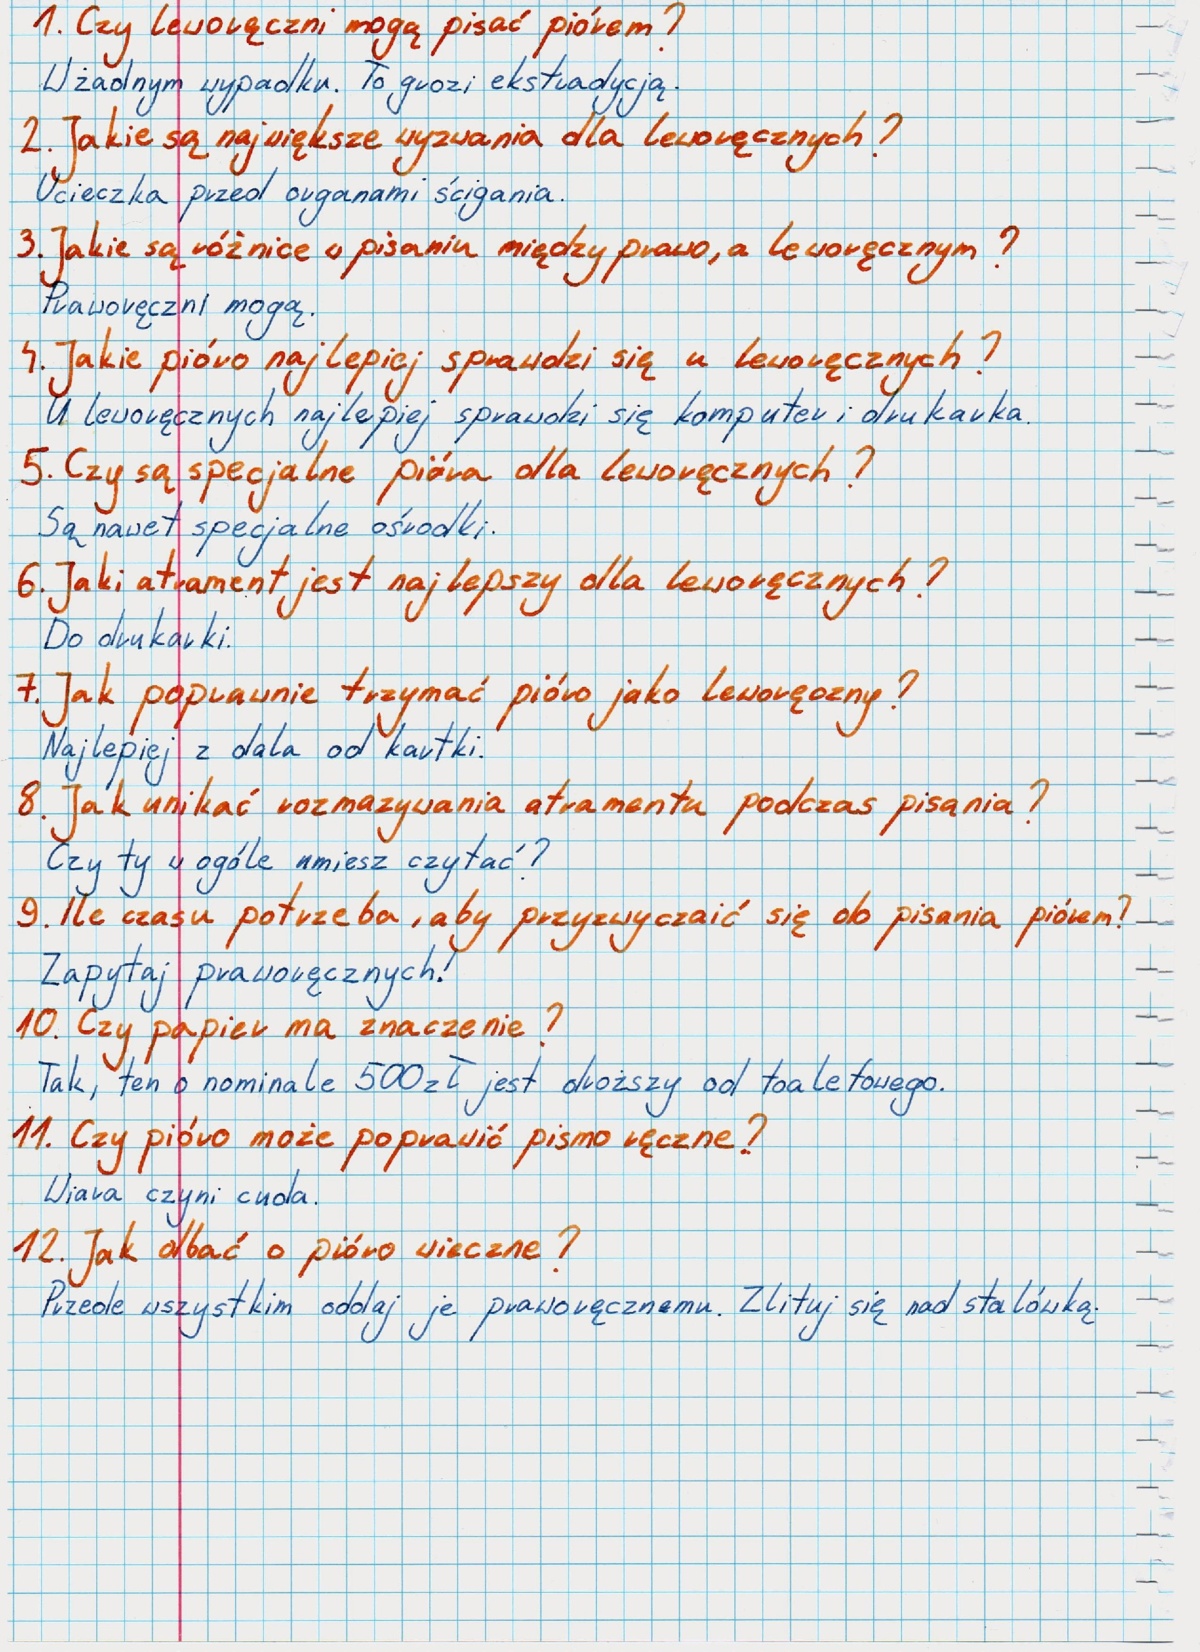 1. Czy leworęczni mogą pisać piórem?
W żadnym wypadku. To grozi ekstradycją.
2. Jakie są największe wyzwania dla leworęcznych?
Ucieczka przed organami ścigania.
3. Jakie są różnice w pisaniu między prawo, a leworęcznym?
Praworęczni mogą.
4. Jakie pióro najlepiej sprawdzi się u leworęcznych?
U leworęcznych najlepiej sprawdzi się komputer i drukarka.
5. Czy są specjalne pióra dla leworęcznych?
Są nawet specjalne ośrodki.
6. Jaki atrament jest najlepszy dla leworęcznych?
Do drukarki.
7. Jak poprawnie trzymać pióro jako leworęczny?
Najlepiej z dala od kartki.
8. Jak unikać rozmazywania atramentu podczas pisania?
Czy ty w ogóle umiesz czytać?
9. Ile czasu potrzeba, aby przyzwyczaić się do pisania piórem?
Zapytaj praworęcznych!
10. Czy papier ma znaczenie?
Tak, ten o nominale 500zł jest droższy od toaletowego.
11. Czy pióro może poprawić pismo ręczne?
Wiara czyni cuda.
12. Jak dbać o pióro wieczne?
Przede wszystkim oddaj je praworęcznemu. Zlituj się nad stalówką.